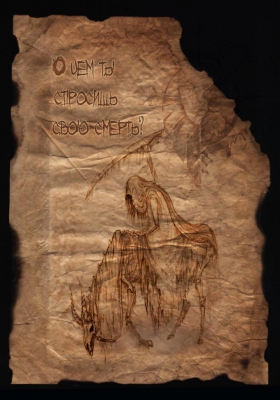 О чем ты
спросишь
свою смерть?